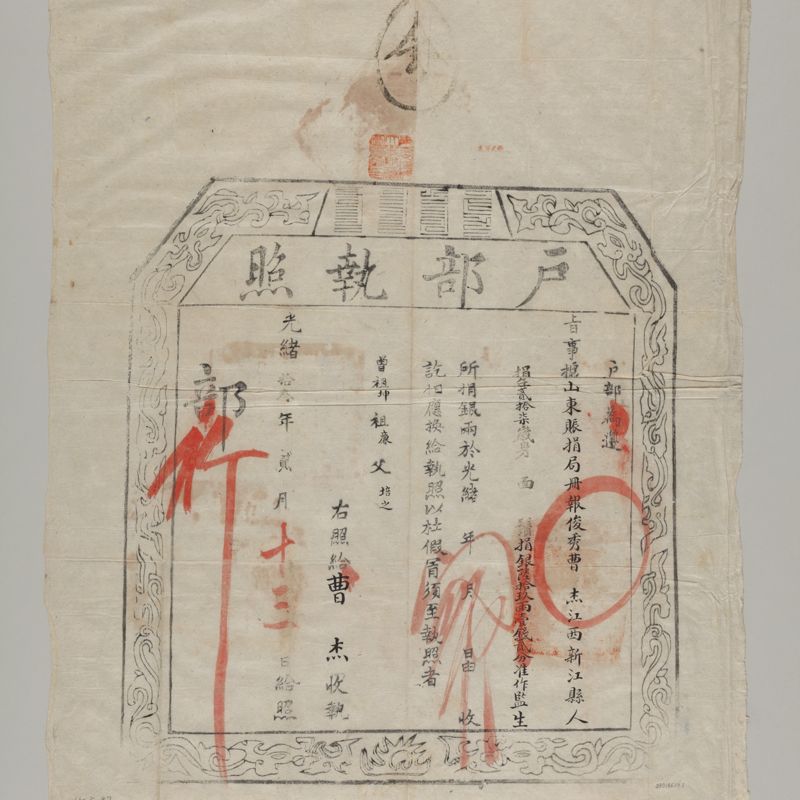 戶部執照
戶部為遵
旨事據山東賑捐局冊報俊秀曹杰江西新江縣人
年貳拾柒歲身 面 捐銀陸拾玖兩壹錢貳分准作監生
所捐銀兩於光緒 年 月 日由 收
訖相應換給執照以杜假冒須至執照者
曾祖坤 祖康 父培之
右照給曹杰收執
光緒拾叁年貳月十三日給照
部
行